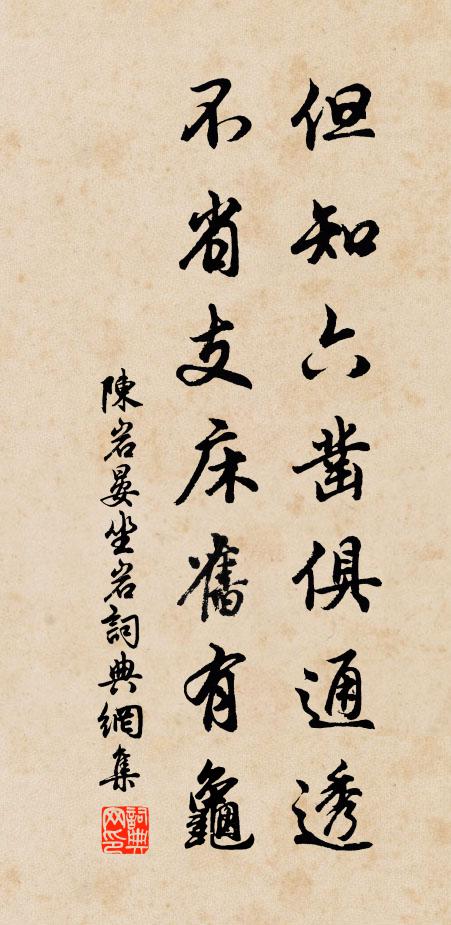 但知六凿俱通透
不省支床舊有龜
陳岩晏坐岩詞典網集
詞典网印